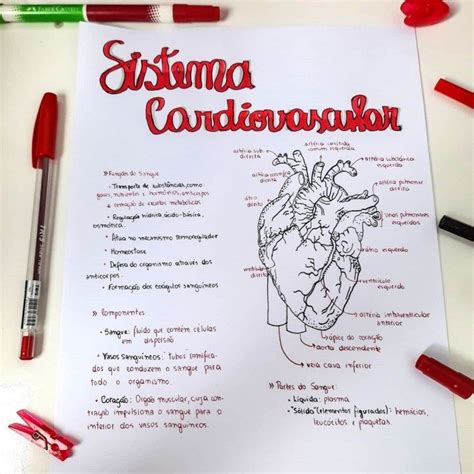 FABER-CASTELL
Sistema
Cardiovascular
» Funções do Sangue
• Transporte de substâncias, como:
gases, nutrientes e hormônios, anticorpos
e remoção de excretas metabólicas
• Regulação hídrica, ácido-básica,
osmótica
• Atua no mecanismo termorregulador
• Homeostase
• Defesa do organismo através dos
anticorpos
• Formação dos coágulos sanguíneos
» Componentes
• Sangue: fluido que contém células
em dispersão
• Vasos sanguíneos: tubos ramificados
que conduzem o sangue para
todo o organismo.
• Coração: Órgão muscular, cuja contração
impulsiona o sangue para o
interior dos vasos sanguíneos.
artéria sub.
direita
artéria carótida
comum esquerda
artéria subclávia
esquerda
artéria carótida
direita
artéria pulmonar
direita
átrio
direito
veias pulmonares
esquerdas
átrio esquerdo
ventrículo
direito
ventrículo
esquerdo
artéria interventricular
anterior
ápice do coração
aorta descendente
veia cava inferior
» Partes do Sangue:
• Líquida: plasma
• "Sólida" (elementos figurados): hemácias,
leucócitos e plaquetas.